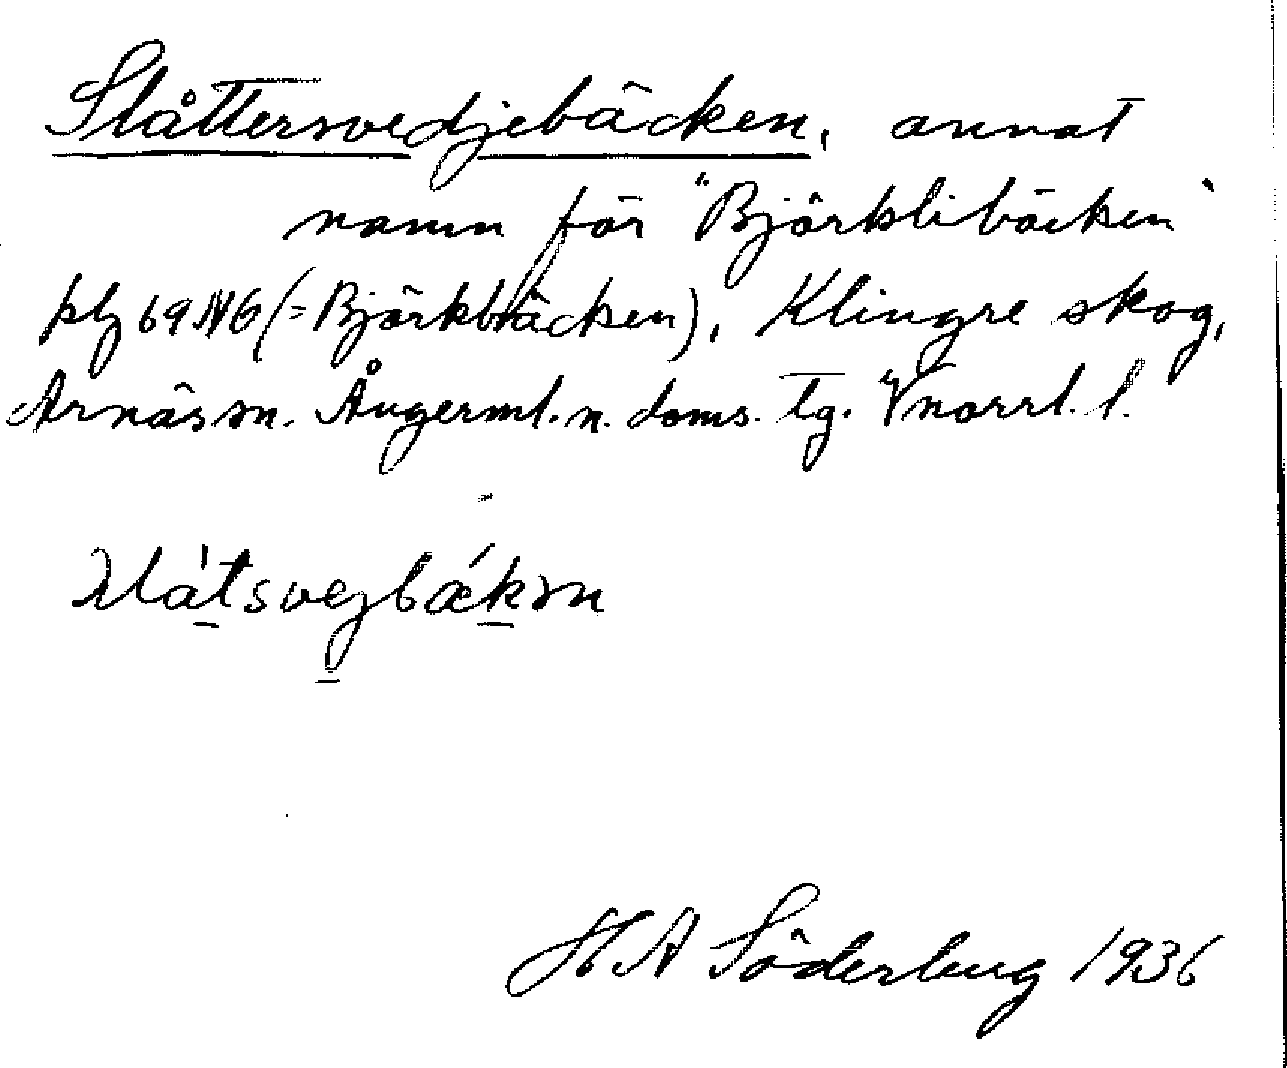 Slåttersvedjebäcken, annat
namn för "Björklibäcken"
plg 69 NG (= Björkbäcken), Klingre skog,
Arnäs sn. Ångerml. n. doms. tg. Vnorrl. l.
HA Söderberg 1936